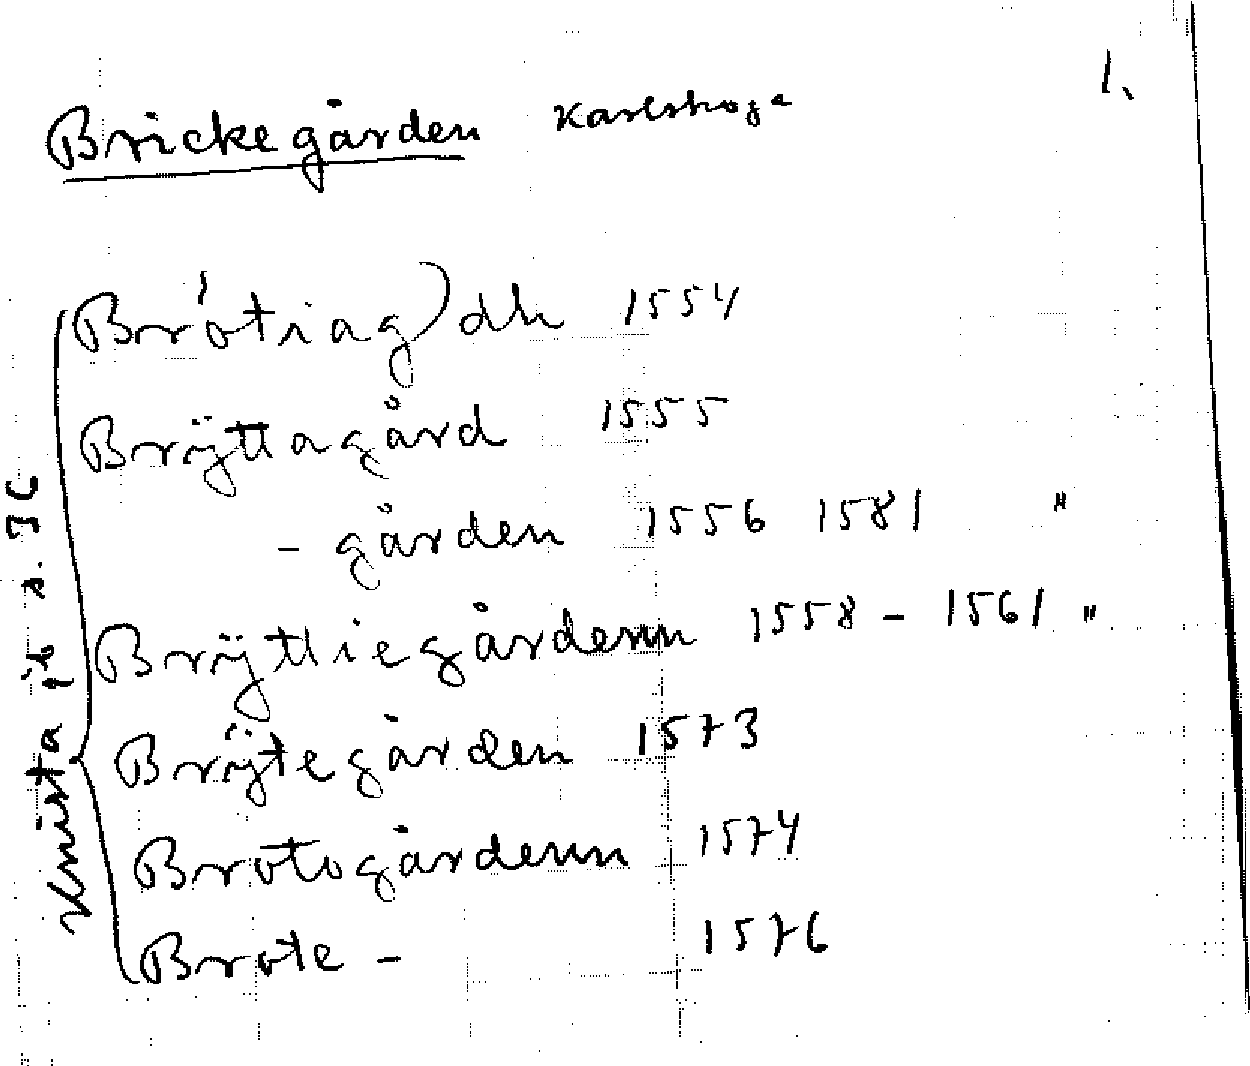 Brickegården Karlskoga 1.
Brótiag) dh 1554
Bröjttagård 1555
- gården 1556 1581 "
Bröjttiegårdenn 1558 - 1561 "
Bröjtegården 1573
Brotogårdenn 1574
Brote - 1576
Knista jb s. 36